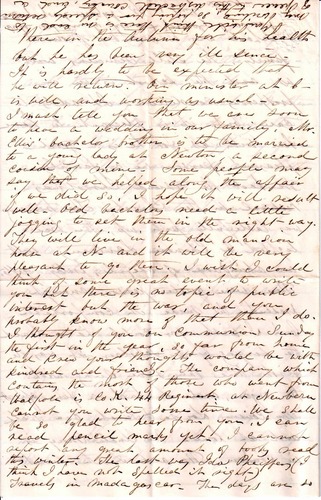 there in the Autumn for his health
but he has been very ill since
It is hardly to be expected that
he will return. Our minister at 
is well, and working as usual -
I must tell you that we are soon
to have a wedding in our family. Mr.
Ellis' bachelor brother is to be married
to a young lady at Newton, a second
cousin of mine - Some people may
say that we helped along the affair
if we did so, I hope it will result
well - Old bachelors need a little
jogging to set them in the right way,
They will live in the old mansion
house at No. and it will be very
pleasant to go there. I wish I could
think of some great event to write
you but there is no topic of public
interest but the war, and you
probably know more of that than I do.
I thought of you on Communion Sunday
the first in the year, so far from home
and knew your thoughts would be with
kindred and friends. The company which
contains the most of those who went from
Walpole is Co. K. 44 Regiment at Newbern
Cannot you write some time. We shall
be so glad to hear from you. I can
read pencil marks yet. I cannot
report any great amount of books read
this winter. The last was Ida Pfeiffer's (I
think I have not spelled it right)
Travels in Madagascar. The days are so